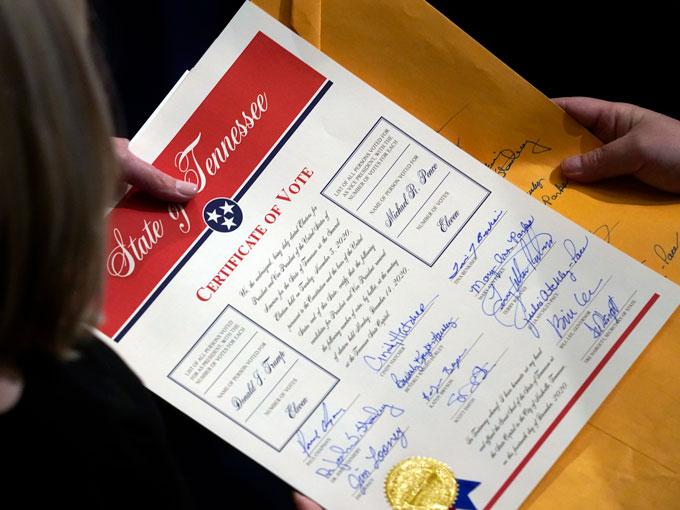 State of Tennessee
CERTIFICATE OF VOTE
LIST OF ALL PERSONS VOTED FOR
AS VICE PRESIDENT, WITH THE
NUMBER OF VOTES FOR EACH
NAME OF PERSON VOTED FOR
Michael R. Pence
NUMBER OF VOTES
Eleven
We, the undersigned, being duly elected Electors for
President and Vice President of the United States of
America for the State of Tennessee at the General
Election held on Tuesday, November 3, 2020,
pursuant to the Constitution and the laws of the United
States and of this State, certify that the following
candidates for President and Vice President received
the following number of votes by ballot at the meeting
of electors held Monday, December 14, 2020, at
the Tennessee State Capitol.
LIST OF ALL PERSONS VOTED
FOR AS PRESIDENT, WITH THE
NUMBER OF VOTES FOR EACH
NAME OF PERSON VOTED FOR
Donald J. Trump
NUMBER OF VOTES
Eleven
Paul Chapman
Dr. John
Jim Looney
Cindy Hatcher
CINDY HATCHER
Beverly Knight-Hurley
Mary Ann Parks
Julia Atchley-Pace
Bill Lee
BILL LEE, GOVERNOR
TRE HARGETT, SECRETARY OF STATE
In Testimony whereof I have hereunto set my hand
and affixed the Great Seal of the State of Tennessee at
the State Capitol in the City of Nashville, Tennessee
on the fourteenth day of December, 2020